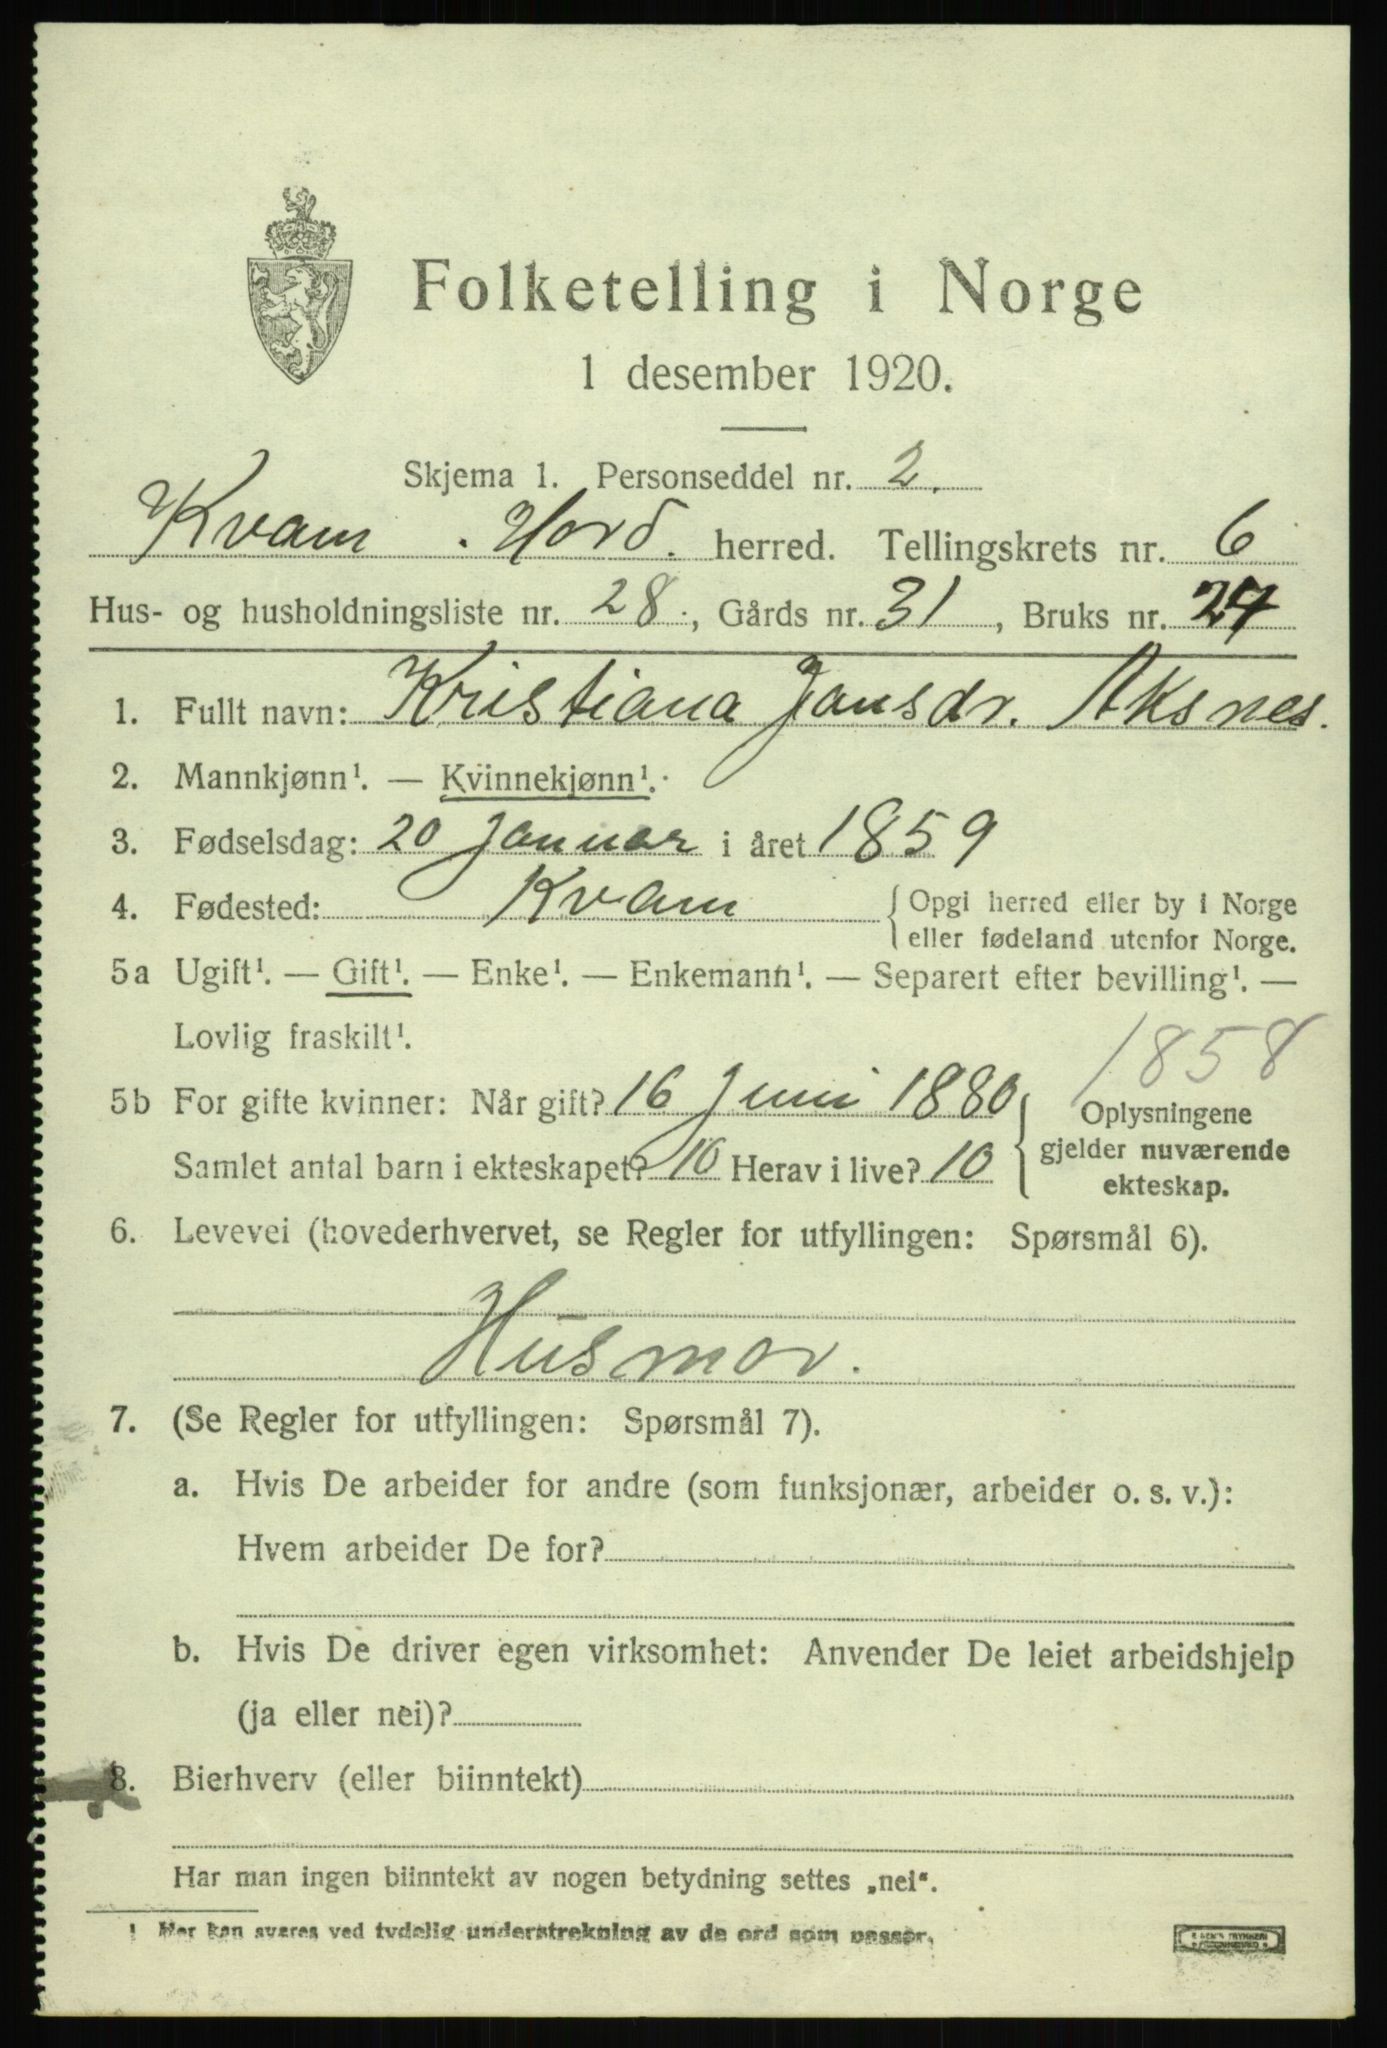 Folketelling i Norge
1 desember 1920.
Skjema 1. Personseddel nr. 2.
Kvam . Hord. herred. Tellingskrets nr. 6
Hus- og husholdningsliste nr. 28., Gårds nr. 31, Bruks nr. 27
1. Fullt navn: Kristiana Jansdr. Aksnes.
2. Mannkjønn¹. — Kvinnekjønn¹.
3. Fødselsdag: 20 Januar i året 1859
4. Fødested: Kvam { Opgi herred eller by i Norge
eller fødeland utenfor Norge.
5a Ugift¹. — Gift¹. — Enke¹. — Enkemann¹. — Separert efter bevilling¹. —
Lovlig fraskilt¹.
1858
5b For gifte kvinner: Når gift? 16 Juni 1880 { Oplysningene
gjelder nuværende
ekteskap.
Samlet antal barn i ekteskapet? 10 Herav i live? 10
6. Levevei (hovederhvervet, se Regler for utfyllingen: Spørsmål 6).
Husmor.
7. (Se Regler for utfyllingen: Spørsmål 7).
a. Hvis De arbeider for andre (som funksjonær, arbeider o. s. v.):
Hvem arbeider De for?
b. Hvis De driver egen virksomhet: Anvender De leiet arbeidshjelp
(ja eller nei)?
8. Bierhverv (eller biinntekt)
Har man ingen biinntekt av nogen betydning settes „nei“.
¹ Her kan svares ved tydelig understrekning av de ord som passer.